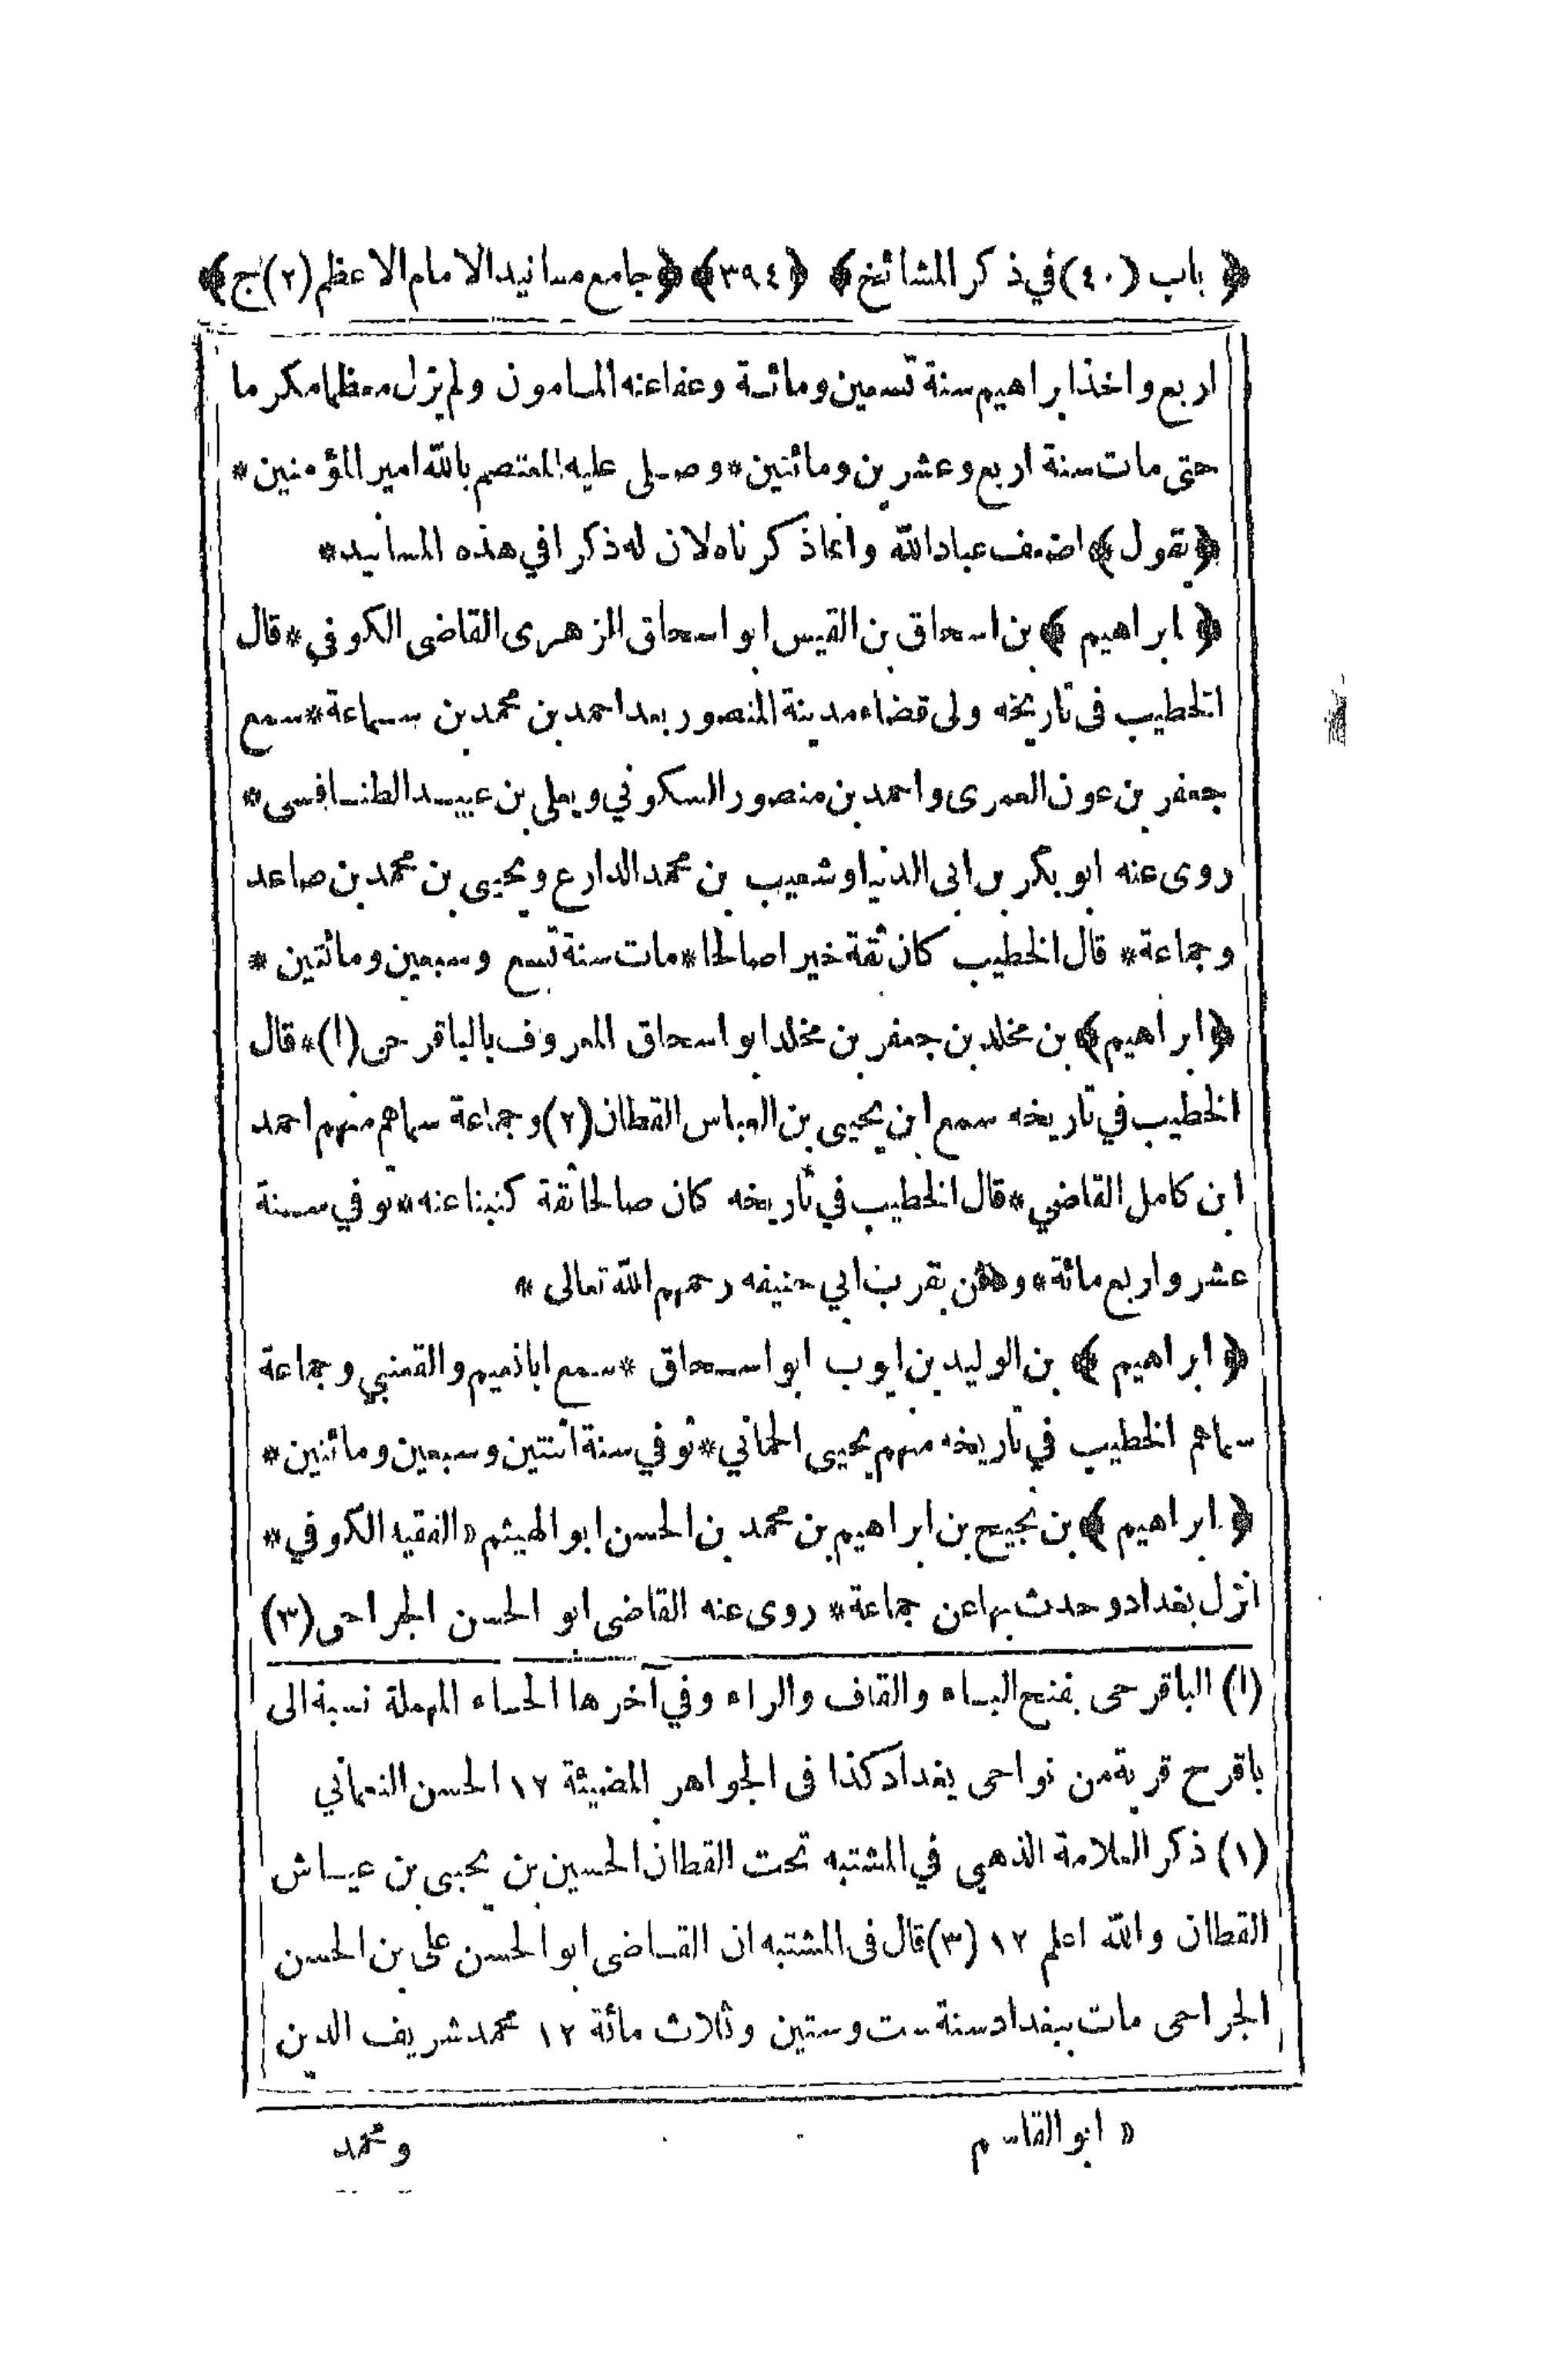 ﴿ باب (٤٠) في ذكر المشائخ ﴾ ﴿ ٣٩٤ ﴾ ﴿ جامع مسانيد الامام الاعظم (٢) ج ﴾
اربع واخذ ابراهيم سنة تسعين ومائة وعفا عنه المامون ولم يزل معظما مكرما
حتى مات سنة اربع وعشرين ومائتين * وصلى عليه المعتصم بالله امير المؤمنين *
﴿ يقول ﴾ اضعف عباد الله وانما ذكرناه لان له ذكرا في هذه المسانيد *
﴿ ابراهيم ﴾ بن اسحاق بن القيس ابو اسحاق الزهرى القاضى الكوفي * قال
الخطيب فى تاريخه ولى قضاء مدينة المنصور بعد احمد بن محمد بن سماعة * سمع
جعفر بن عون العمرى واحمد بن منصور السكوني ويعلى بن عبيد الطنافسى *
روى عنه ابو بكر بن ابى الدنيا وشعيب بن محمد الدارع ويحيى بن محمد بن صاعد
وجماعة * قال الخطيب كان ثقة خيرا صالحا * مات سنة تسع وسبعين ومائتين *
﴿ ابراهيم ﴾ بن مخلد بن جعفر بن مخلد ابو اسحاق المعروف بالباقرحى (١) * قال
الخطيب في تاريخه سمع ابن يحيى بن العباس القطان (٢) وجماعة سماهم منهم احمد
ابن كامل القاضي * قال الخطيب في تاريخه كان صالحا ثقة كتبنا عنه * توفي سنة
عشر واربع مائة * ودفن بقرب ابي حنيفه رحمهم الله تعالى *
﴿ ابراهيم ﴾ بن الوليد بن ايوب ابو اسحاق * سمع ابا نعيم والقعنبي وجماعة
سماهم الخطيب في تاريخه منهم يحيى الحماني * توفي سنة اثنتين وسبعين ومائتين *
﴿ ابراهيم ﴾ بن نجيح بن ابراهيم بن محمد بن الحسن ابو الهيثم « الفقيه الكوفي *
انزل بغداد وحدث بها عن جماعة * روى عنه القاضى ابو الحسن الجراحى (٣)
(١) الباقرحى بفتح الباء والقاف والراء وفي آخرها الحاء المهملة نسبة الى
باقرح قرية من نواحى بغداد كذا فى الجواهر المضيئة ١٢ الحسن النعماني
(١) ذكر العلامة الذهبي في المشتبه تحت القطان الحسين بن يحيى بن عياش
القطان والله اعلم ١٢ (٣) قال فى المشتبه ان القاضى ابو الحسن على بن الحسن
الجراحى مات ببغداد سنة ست وستين وثلاث مائة ١٢ محمد شريف الدين
« ابو القاسم
ومحمد